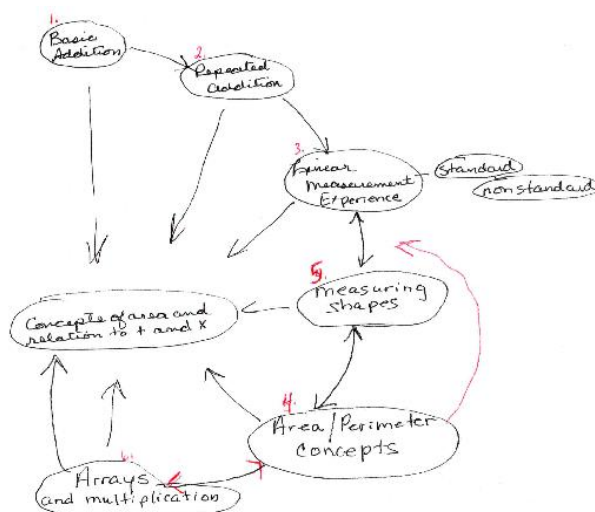 1.
Basic
Addition
2.
Repeated
addition
3.
Linear
Measurement
Experience
standard
nonstandard
5.
measuring
shapes
Concepts of area and
relation to + and x
4.
Area/Perimeter
concepts
6.
Arrays
and multiplication